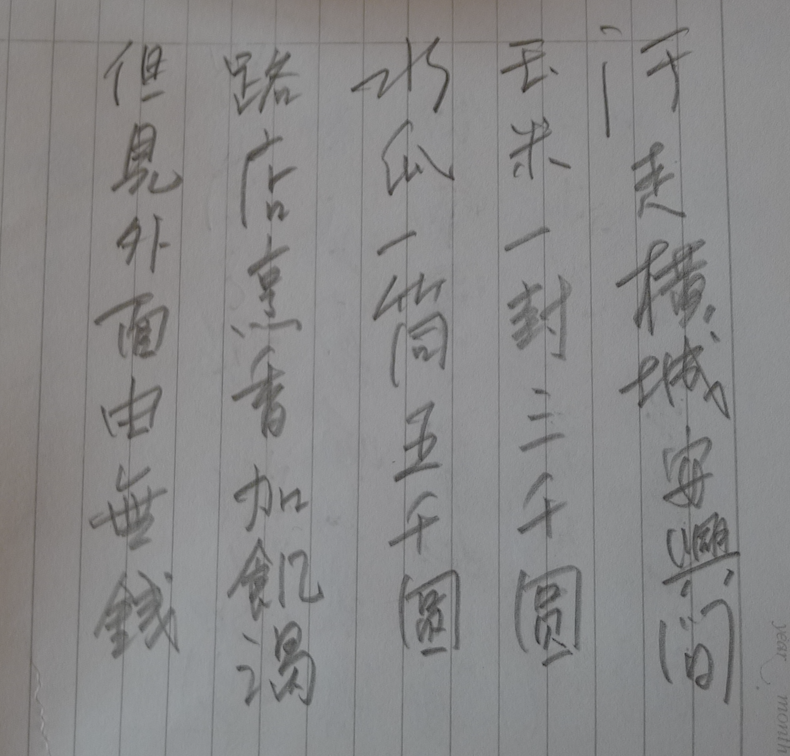 汗走橫城安興间
玉米一封三千圓
水瓜一筒五千圓
路店烹香加飢渴
但見外面由無錢
year month